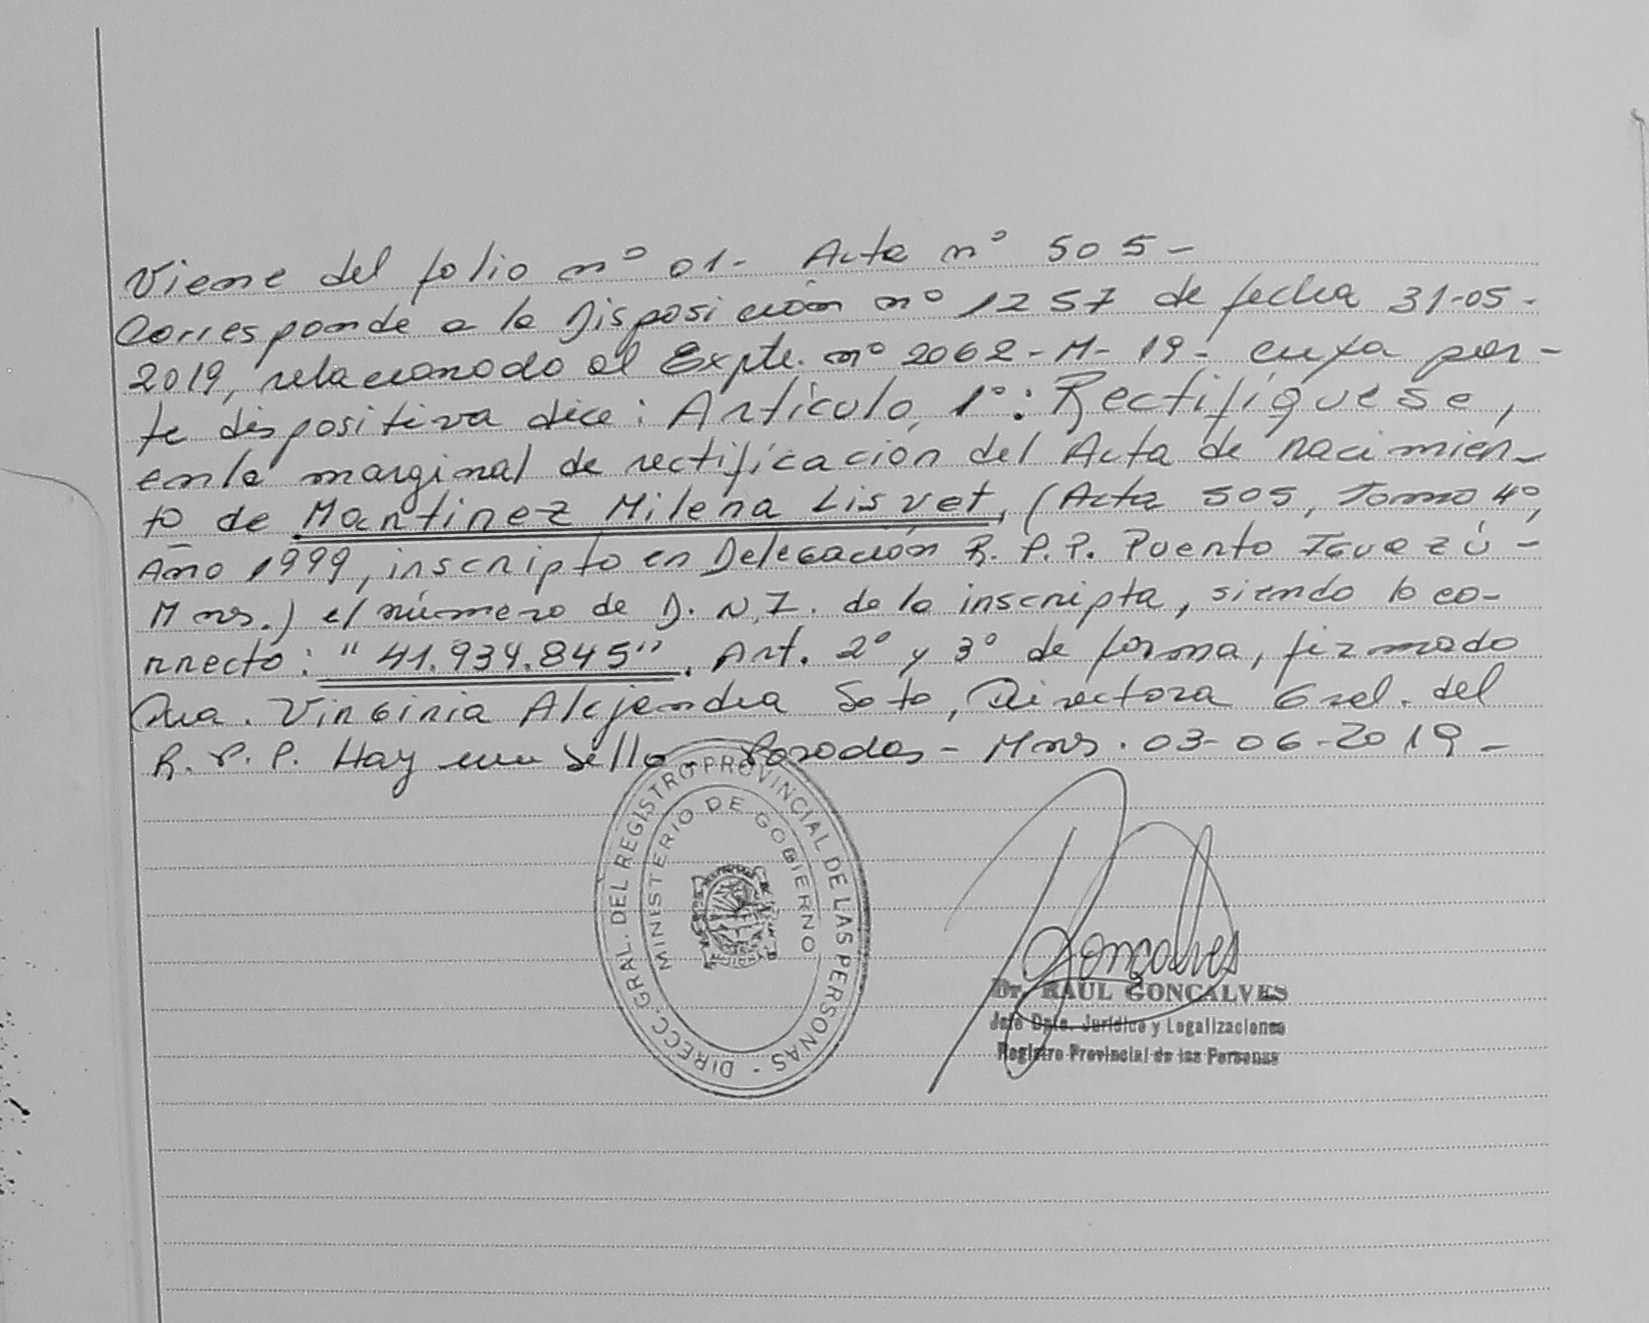 Viene del folio nº 01- Acta nº 505-
Corresponde a la Disposición nº 1257 de fecha 31-05-
2019, relacionado al Expte. nº 2062-M-19- cuya par-
te dispositiva dice: Artículo, 1º: Rectifíquese,
en la marginal de rectificación del Acta de nacimien-
to de Martinez Milena Lisvet, (Acta 505, Tomo 4º,
Año 1999, inscripto en Delegación R. P. P. Puerto Iguazú-
Mnes.) el número de D. N. I. de la inscripta, siendo lo co-
rrecto: "41.934.845". Art. 2º y 3º de forma, firmado
Dra. Virginia Alejandra Soto, Directora Gral. del
R. P. P. Hay un sello. Posadas - Mnes. 03-06-2019-
DIRECC. GRAL. DEL REGISTRO PROVINCIAL DE LAS PERSONAS -
MINISTERIO DE GOBIERNO
Gonçalves
Dr. RAUL GONCALVES
Jefe Dpto. Jurídico y Legalizaciones
Registro Provincial de las Personas